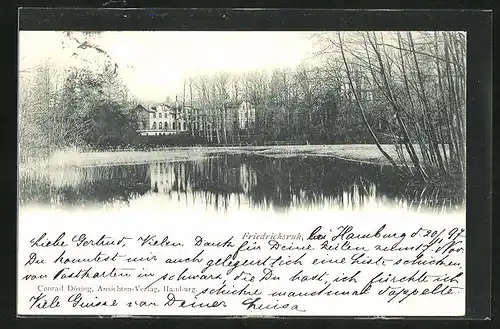 Friedrichsruh, bei Hamburg d 20/1 97
Liebe Gertrud. Vielen Dank für Deine Zeilen
Du kannst mir auch gelegentlich eine Liste schicken,
von Postkarten in schwarz, die Du hast, ich fürchte ich
Conrad Döring, Ansichten-Verlag, Hamburg.
schicke manchmal doppelte.
Viele Grüsse von Deiner Luisa